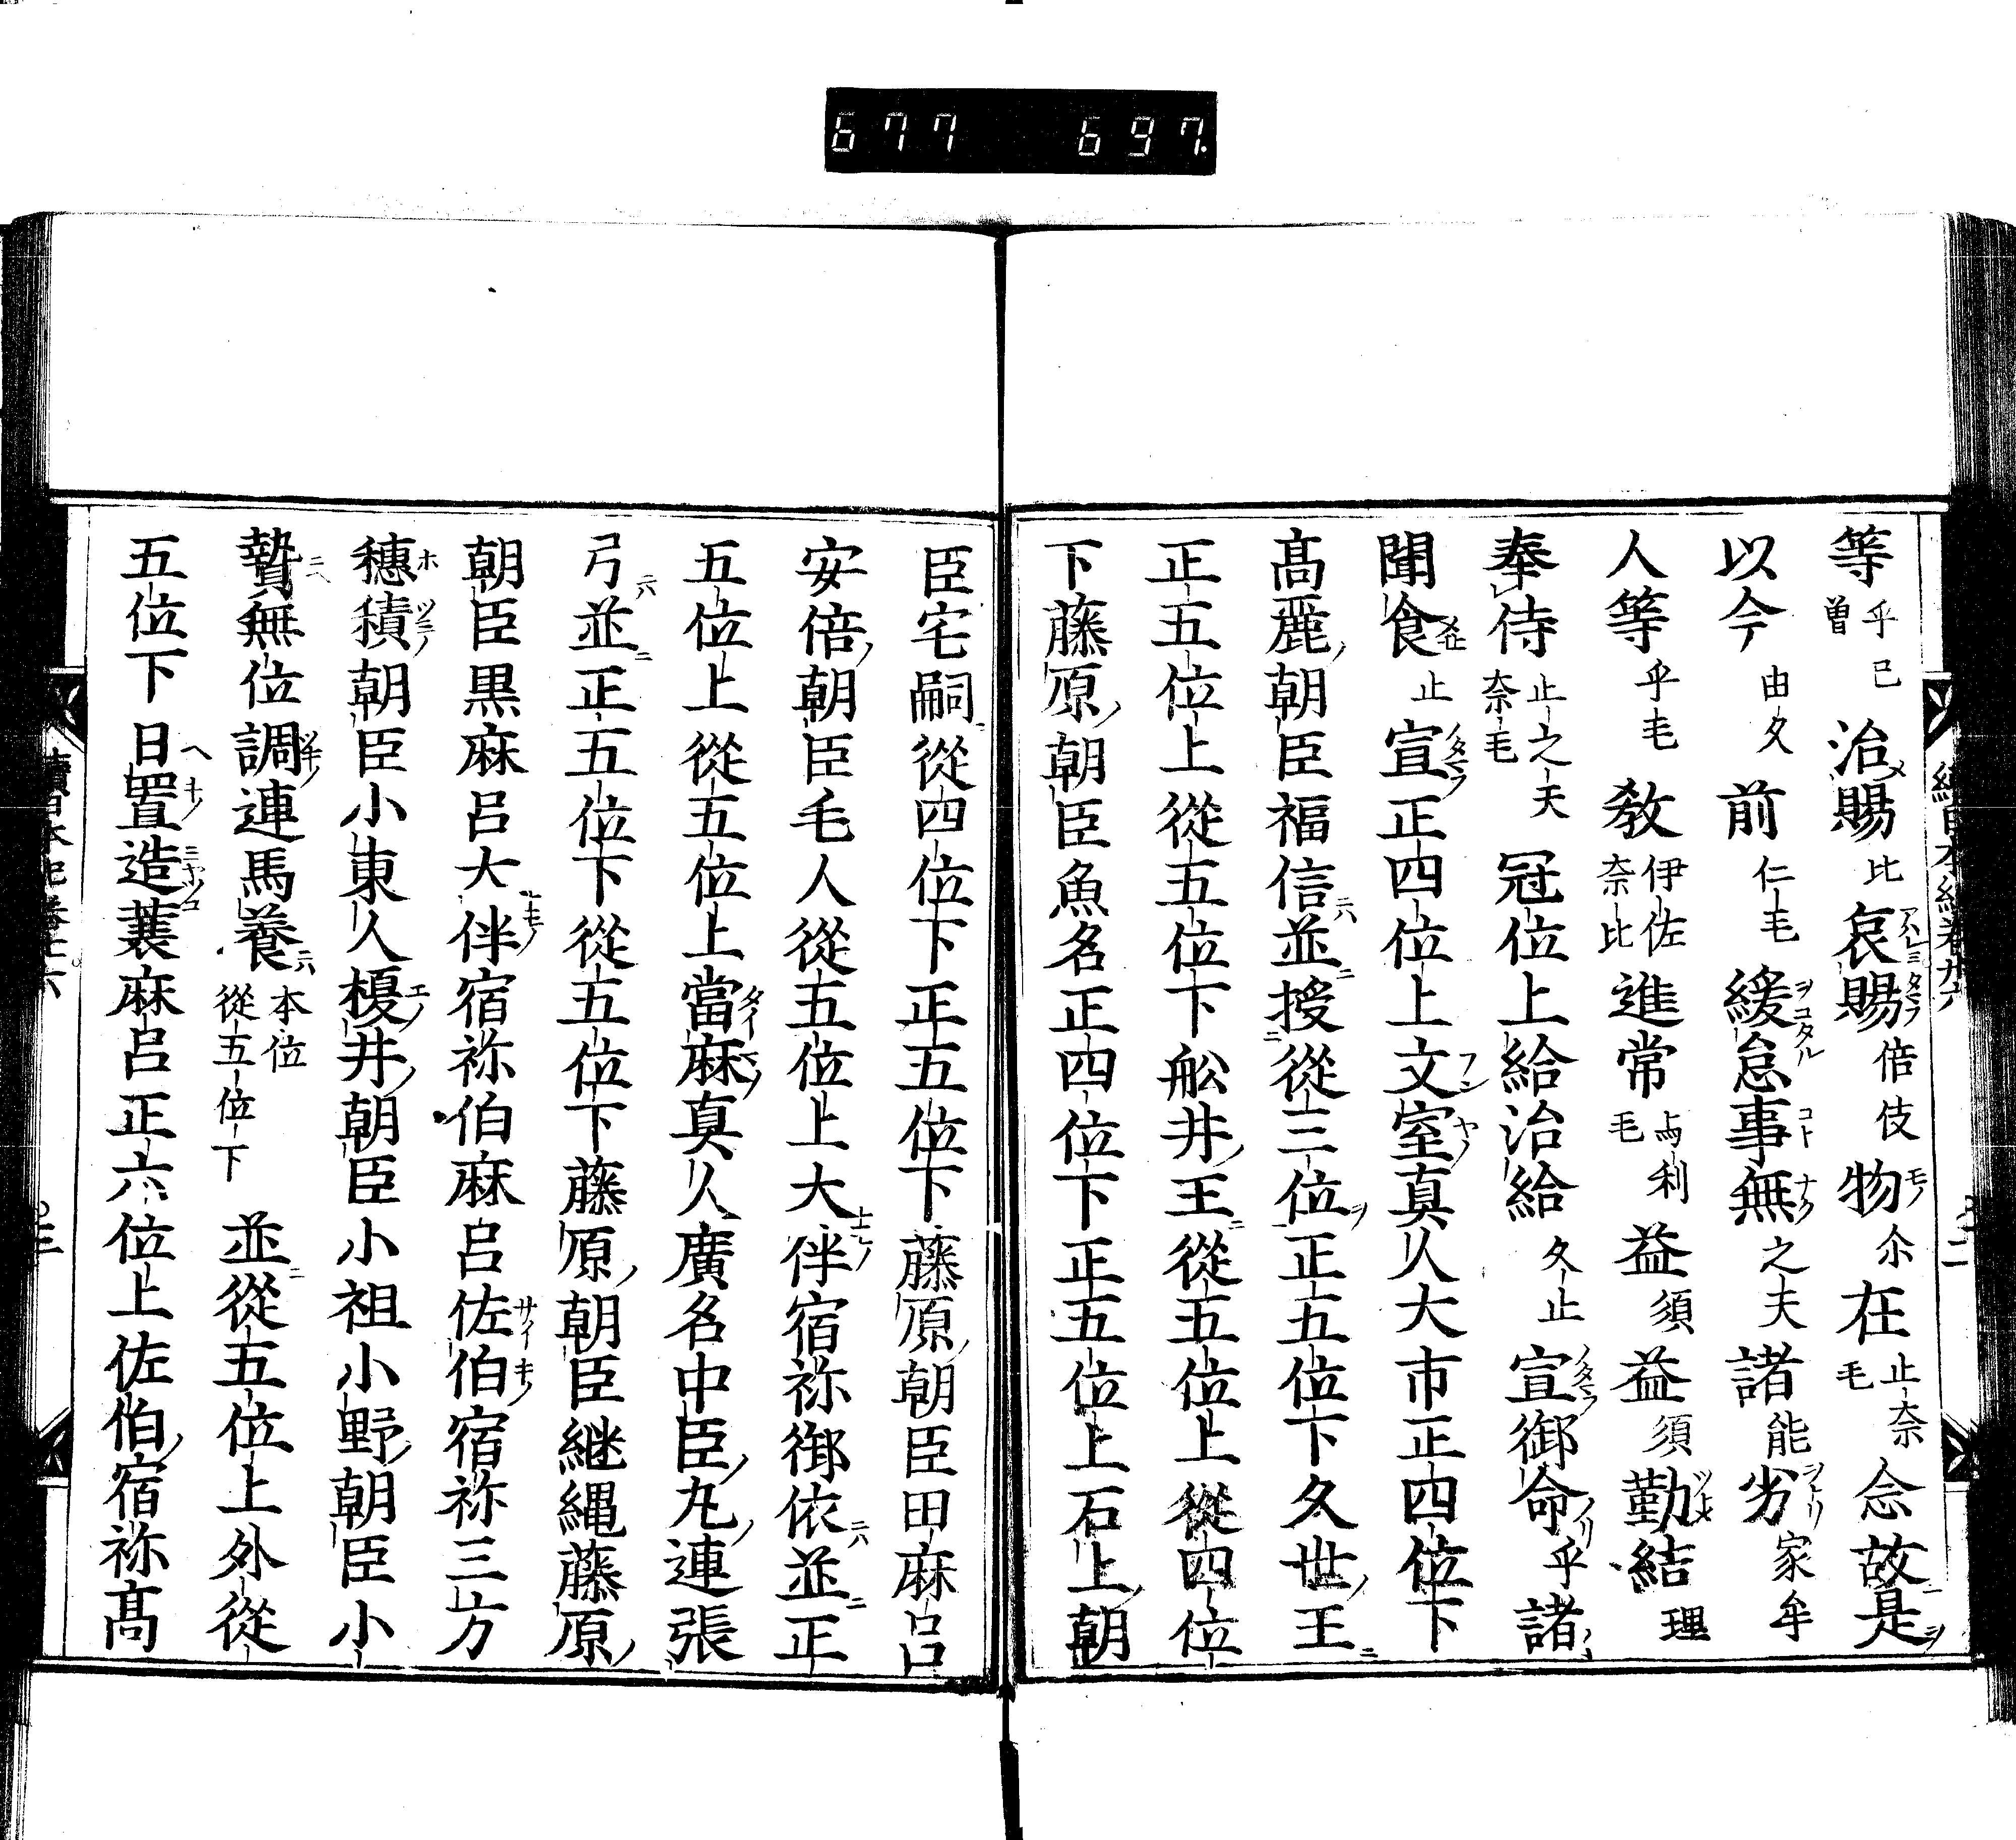 677 697.
等乎曽己治賜比哀賜倍伎物尒在止奈毛念故是
以今由久前仁毛緩怠事無之夫諸能劣家牟
人等乎毛教伊佐奈比進常与利毛益須益須勤結理
奉侍止之天奈毛冠位上給治給久止宣御命乎諸
聞食止宣正四位上文室真人大市正四位下
髙麗朝臣福信並授從三位正五位下久世王
正五位上從五位下舩井王從五位上從四位
下藤原朝臣魚名正四位下正五位上石上朝
臣宅嗣從四位下正五位下藤原朝臣田麻呂
安倍朝臣毛人從五位上大伴宿祢御依並正
五位上從五位上當麻真人廣名中臣丸連張
弓並正五位下從五位下藤原朝臣継縄藤原
朝臣黒麻呂大伴宿祢伯麻呂佐伯宿祢三方
穗積朝臣小東人榎井朝臣小祖小野朝臣小
贄無位調連馬養本位從五位下並從五位上外從
五位下日置造蓑麻呂正六位上佐伯宿祢髙